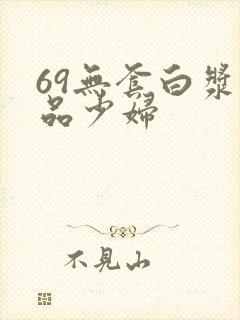 69無套白漿
品少婦
不見山